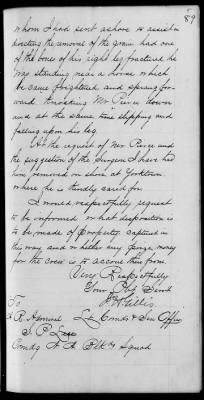 89
whom I had sent ashore to assist in
directing the removal of the Grain had one
of the bones of his right leg fractured he
was standing near a horse which
became frightened and sprang for-
ward knocking Mr Pierce down
and at the same time slipping and
falling upon his leg.
At the request of Mr Pierce and
the suggestion of the Surgeon I have had
him removed on shore at Yorktown
where he is kindly cared for
I would respectfully request
to be informed what disposition is
to be made of property captured in
this way and whether any prize money
for the crew is to accrue therefrom.
Very Respectfully
Your Obt Servt
J H Gillis
Lt Comdr & Sen Officer
To
A R Admiral
S. P Lee
Comdg N A Blkg Squad